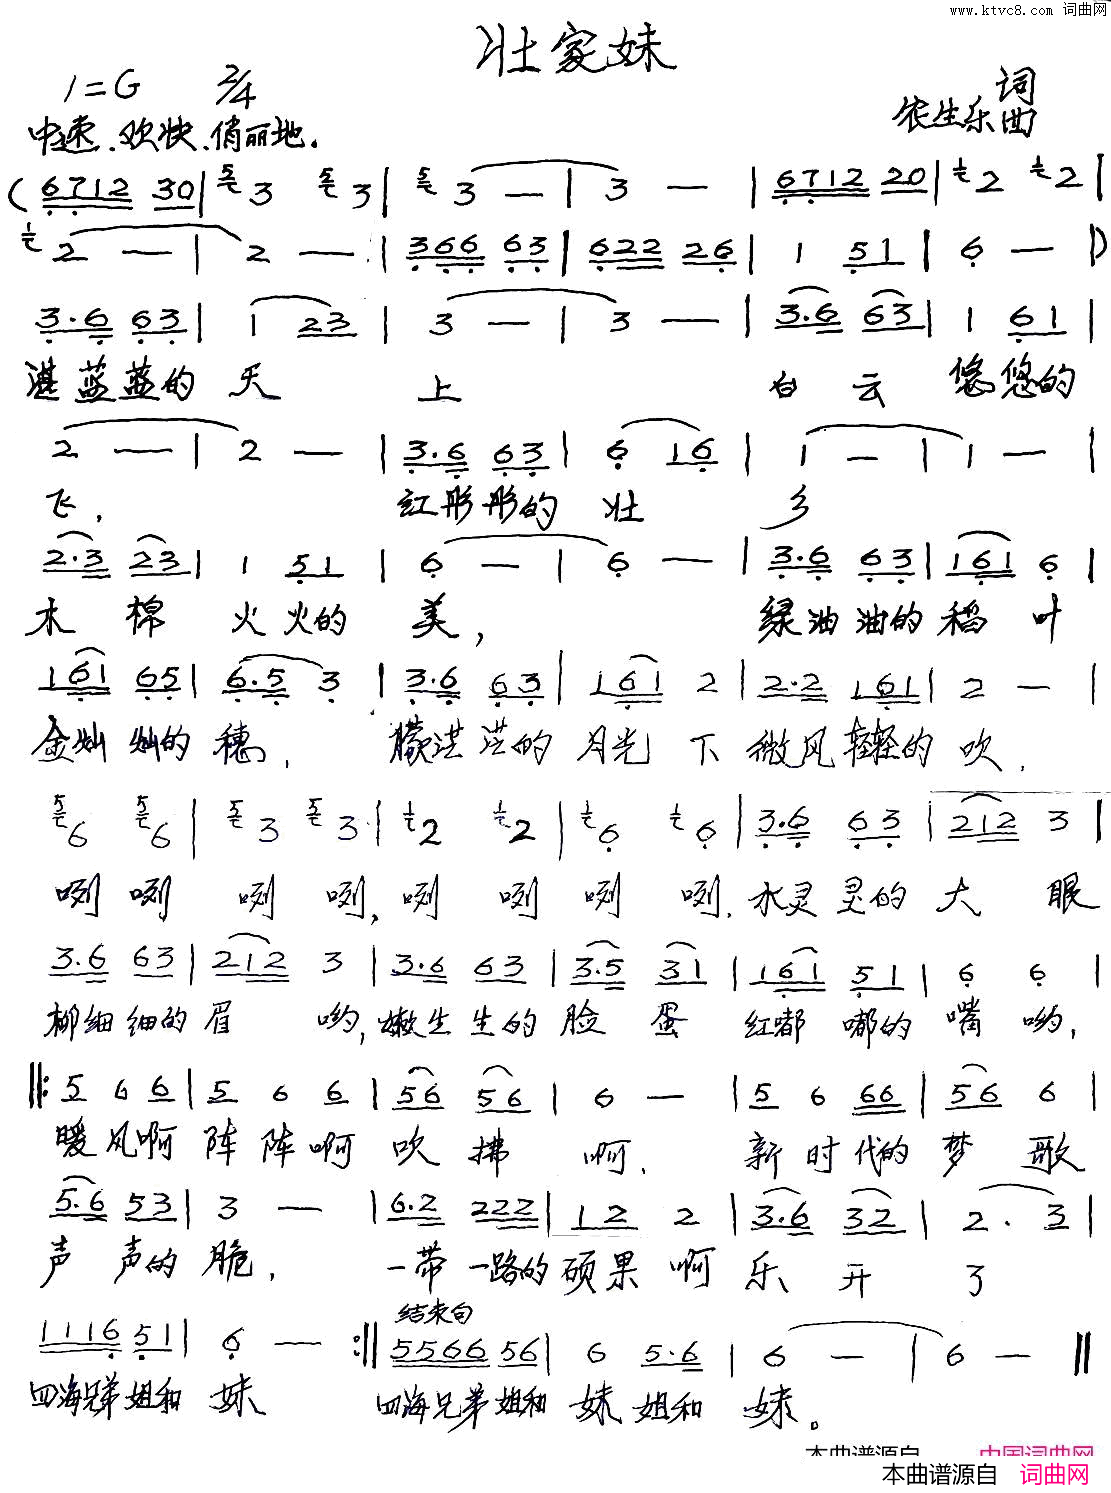 www.ktvc8.com 词曲网
壮家妹
1=G 2/4
词
依生乐曲
中速.欢快.俏丽地.
(6712 30 | 3 3 | 3 — | 3 — | 6712 20 | 2 2 |
2 — | 2 — | 366 63 | 622 26 | 1 51 | 6 — |)
3.6 63 | 1 23 | 3 — | 3 — | 3.6 63 | 1 61 |
湛蓝蓝的天 上 白云 悠悠的
2 — | 2 — | 3.6 63 | 6 16 | 1 — | 1 — |
飞, 红彤彤的壮 乡
2.3 23 | 1 51 | 6 — | 6 — | 3.6 63 | 161 6 |
木棉 火火的 美, 绿油油的稻叶
161 65 | 6.5 3 | 3.6 63 | 161 2 | 2.2 161 | 2 — |
金灿灿的穗, 朦茫茫的月光下 微风轻轻的吹.
6 6 | 3 3 | 2 2 | 6 6 | 3.6 63 | 212 3 |
咧咧 咧咧,咧 咧咧 咧.水灵灵的大 眼
3.6 63 | 212 3 | 3.6 63 | 3.5 31 | 161 51 | 6 6 |
柳细细的眉 哟,嫩生生的脸蛋 红嘟嘟的嘴哟,
‖: 5 6 6 | 5 6 6 | 56 56 | 6 — | 5 6 66 | 56 6 |
暖风啊 阵阵啊 吹拂 啊. 新时代的梦歌
5.6 53 | 3 — | 6.2 222 | 12 2 | 3.6 32 | 2 . 3 |
声声的脆, 一带一路的硕果啊 乐开 了
结束句
1116 51 | 6 — :‖ 5566 56 | 6 5.6 | 6 — | 6 — ‖
四海兄弟姐和 妹 四海兄弟姐和 妹 姐和 妹。
本曲谱源自 中国词曲网
本曲谱源自 词曲网